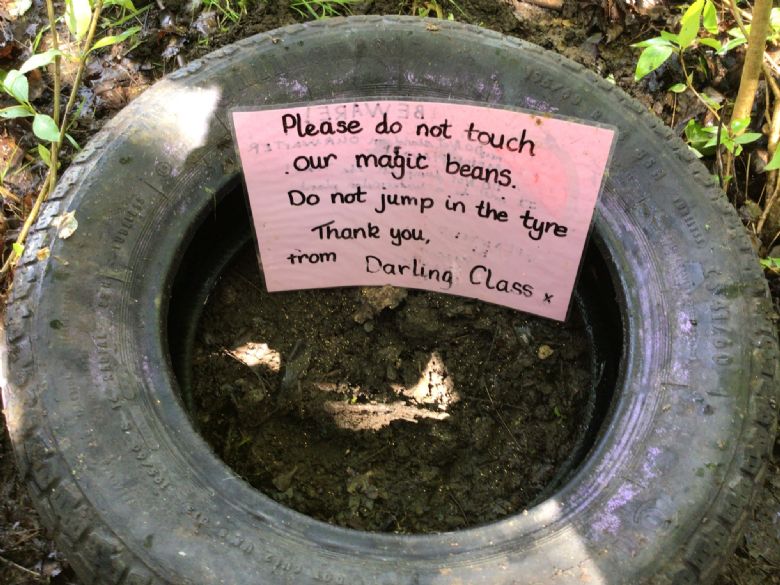 BEWARE!
Please do not touch
our magic beans.
Do not jump in the tyre
Thank you,
from Darling Class x